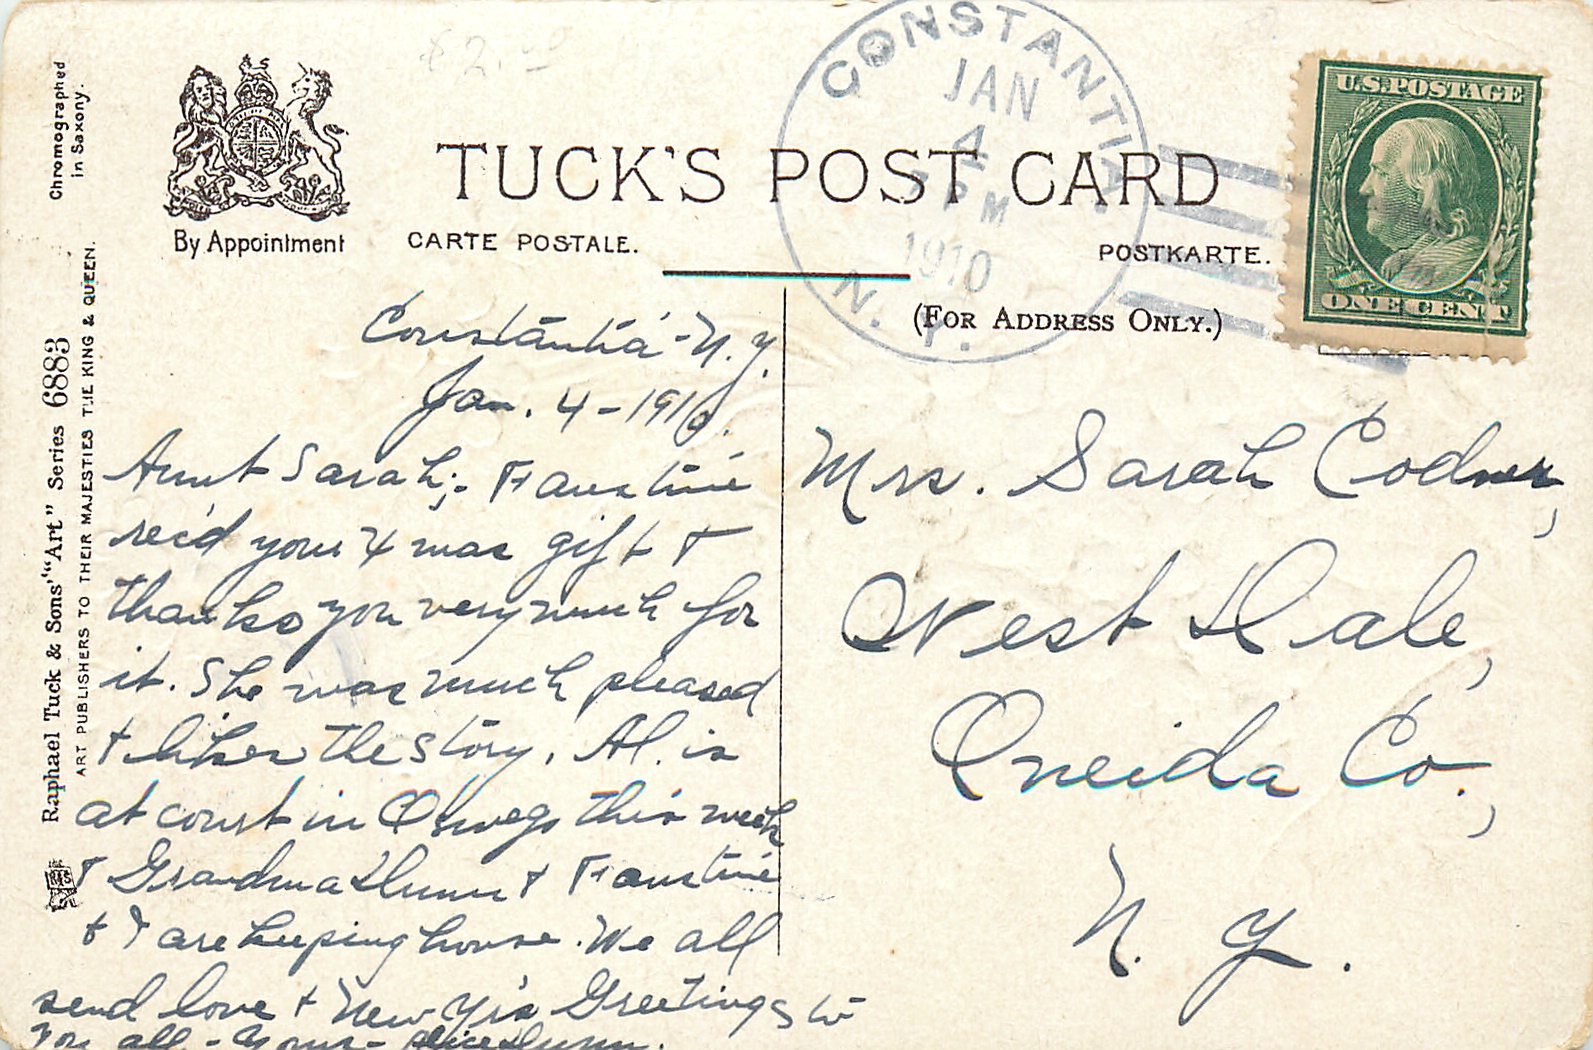 $2.00
Chromographed
in Saxony.
By Appointment
TUCK'S POST CARD
CARTE POSTALE.
POSTKARTE.
(FOR ADDRESS ONLY.)
CONSTANTIA.
JAN
4
PM
1910
N. Y.
U.S. POSTAGE
ONE CENT
Raphael Tuck & Sons' "Art" Series 6883
ART PUBLISHERS TO THEIR MAJESTIES THE KING & QUEEN.
Constantia - N.Y.
Jan. 4 - 1910.
Aunt Sarah;- Faustine
rec'd your Xmas gift &
thanks you very much for
it. She was much pleased
& likes the story. Al. is
at court in Oswego this week
& Grandma Dunn & Faustine
& I are keeping house. We all
send love & New Yr's Greetings to
you all - Yours - Alice Dunn.
Mrs. Sarah Codner,
West Dale,
Oneida Co.,
N. Y.